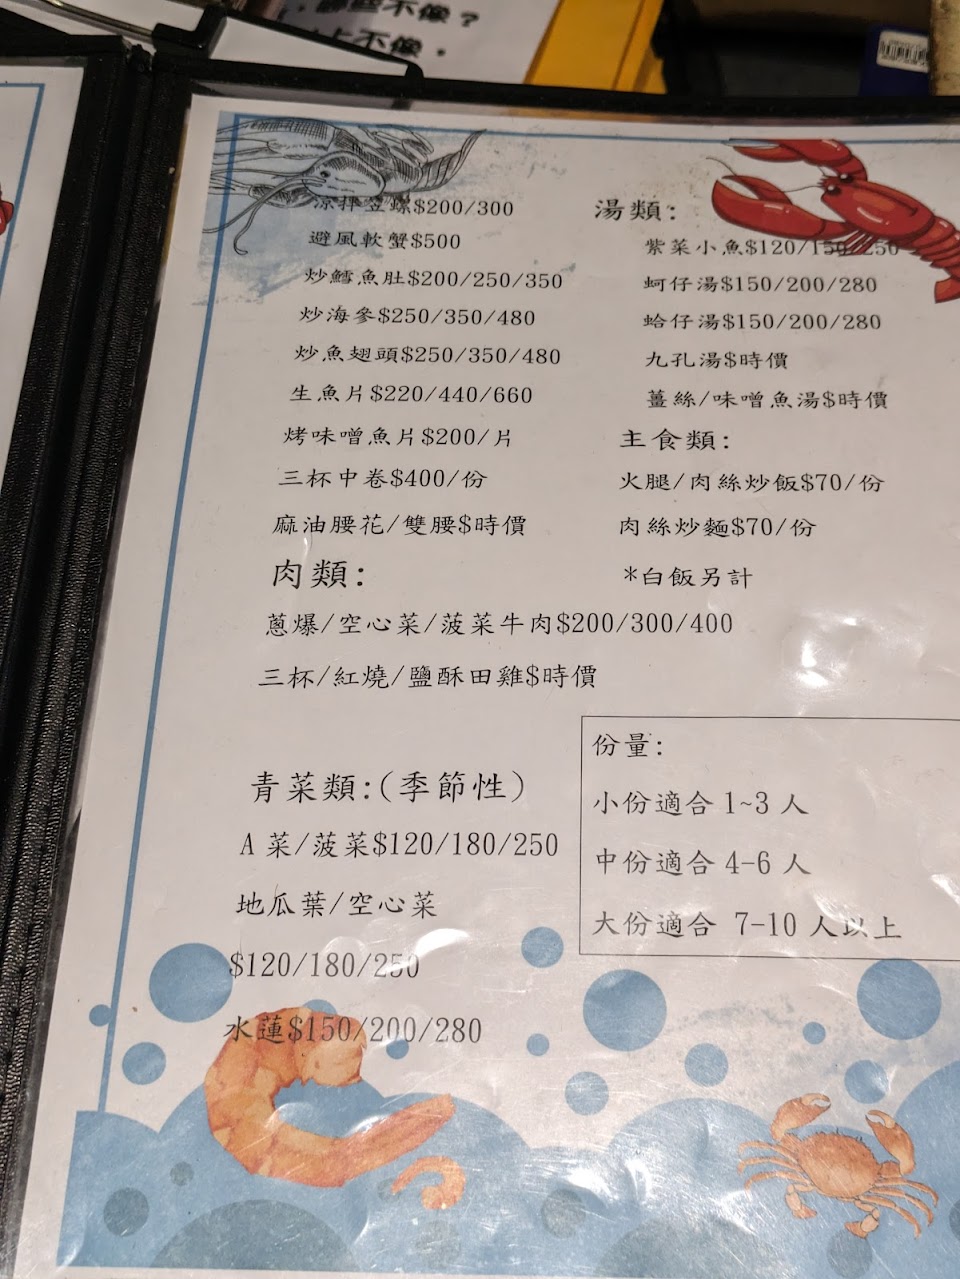 哪些不像？
上不像。
涼拌螺$200/300
避風軟蟹$500
炒鱈魚肚$200/250/350
炒海參$250/350/480
炒魚翅頭$250/350/480
生魚片$220/440/660
烤味噌魚片$200/片
三杯中卷$400/份
麻油腰花/雙腰$時價
肉類:
蔥爆/空心菜/菠菜牛肉$200/300/400
三杯/紅燒/鹽酥田雞$時價
青菜類:(季節性)
A菜/菠菜$120/180/250
地瓜葉/空心菜
$120/180/250
水蓮$150/200/280
湯類:
紫菜小魚$120/150/250
蚵仔湯$150/200/280
蛤仔湯$150/200/280
九孔湯$時價
薑絲/味噌魚湯$時價
主食類:
火腿/肉絲炒飯$70/份
肉絲炒麵$70/份
*白飯另計
份量:
小份適合 1~3 人
中份適合 4-6 人
大份適合 7-10 人以上